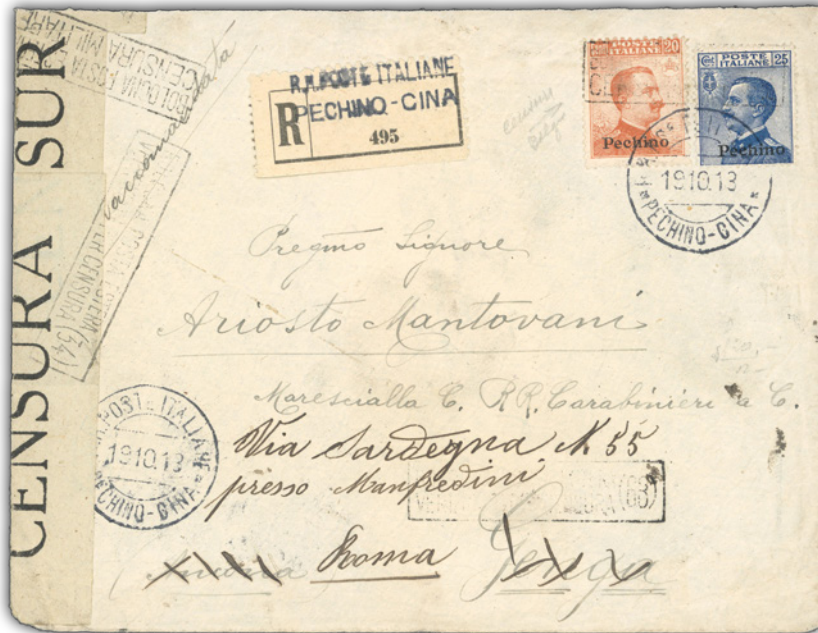 CENSURA SUR
BOLOGNA POSTA
CENSURA MILITARE
Raccomandata
POSTA ESTERA
PER CENSURA (34)
R.R. POSTE ITALIANE
PECHINO-CINA
R
495
POSTE ITALIANE 20
Pechino
POSTE ITALIANE 25
Pechino
19.10.13
PECHINO-CINA
Pregmo Signore
Ariosto Mantovani
Maresciallo C. RR. Carabinieri a C.
Via Sardegna N 55
presso Manfredini
(68)
POSTE ITALIANE
19.10.13
PECHINO-CINA
Ancona Roma Genga